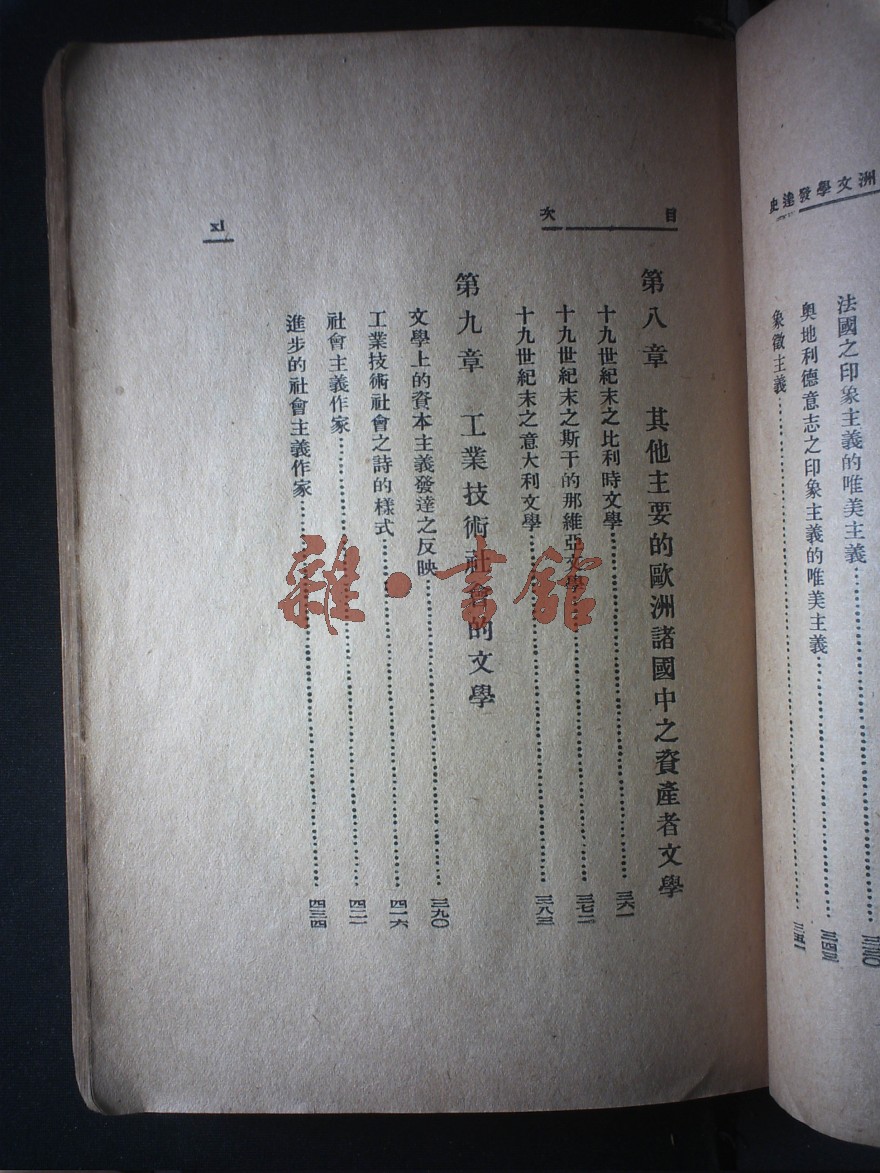 洲文學發達史
法國之印象主義的唯美主義……三三〇
奧地利德意志之印象主義的唯美主義……三四三
象徵主義……三五一
目次
第八章　其他主要的歐洲諸國中之資產者文學
十九世紀末之比利時文學……三六一
十九世紀末之斯干的那維亞文學……三七二
十九世紀末之意大利文學……三八三
第九章　工業技術社會的文學
文學上的資本主義發達之反映……三九〇
工業技術社會之詩的樣式……四一六
社會主義作家……四二一
進步的社會主義作家……四三四
xi
雜·書館